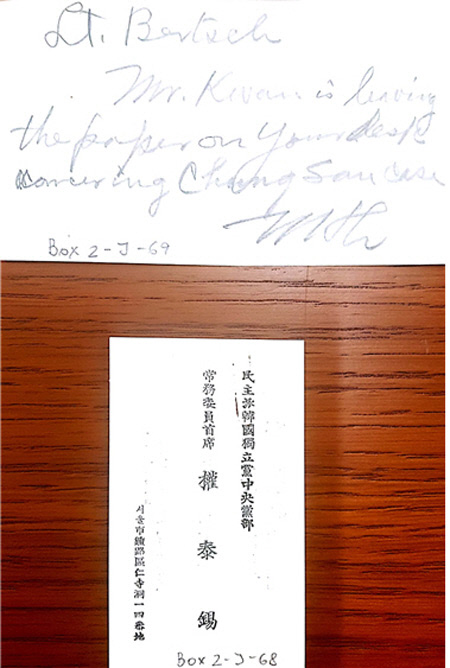 Lt. Bertsch
Mr. Kwan is leaving
the paper on your desk
concerning Chang San case
Box 2-J-69
民主派韓國獨立黨中央黨部
常務委員首席
權泰錫
서울市鐘路區仁寺洞一四番地
Box 2-J-68